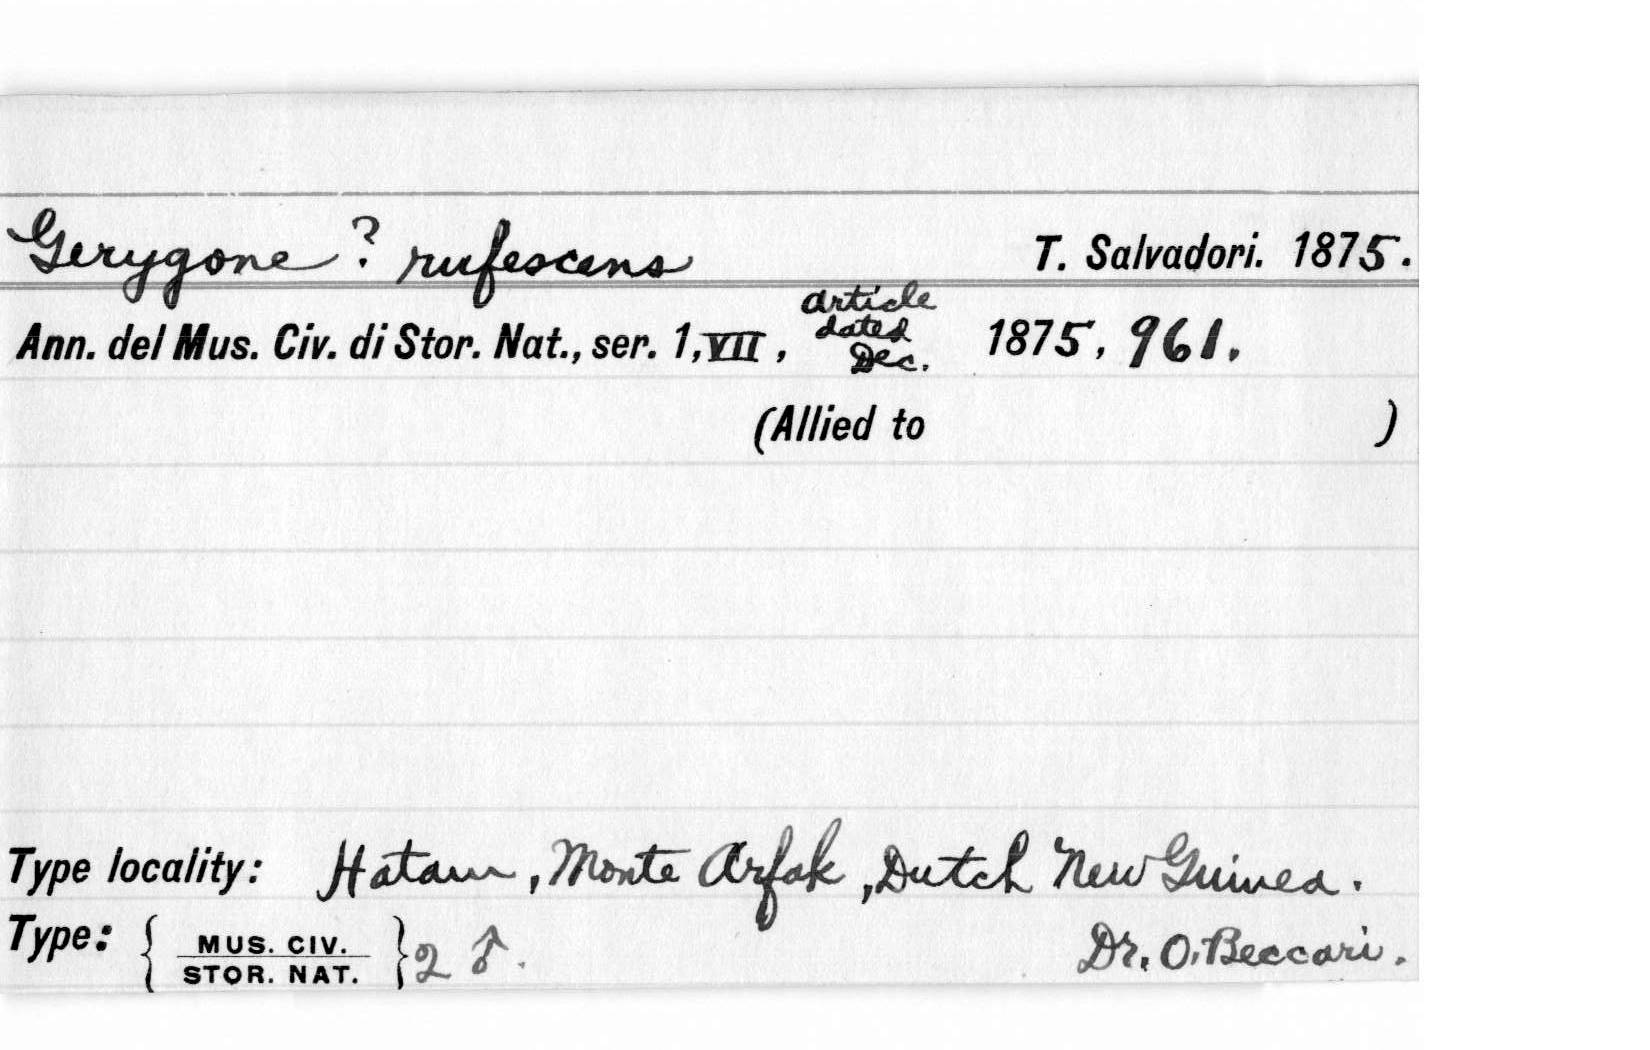 Gerygone ? rufescens T. Salvadori. 1875.
Ann. del Mus. Civ. di Stor. Nat., ser. 1, VII, article dated Dec. 1875, 961.
(Allied to )
Type locality: Hatam, Monte Arfak, Dutch New Guinea.
Type: { MUS. CIV. STOR. NAT. } 2 ♂. Dr. O. Beccari.